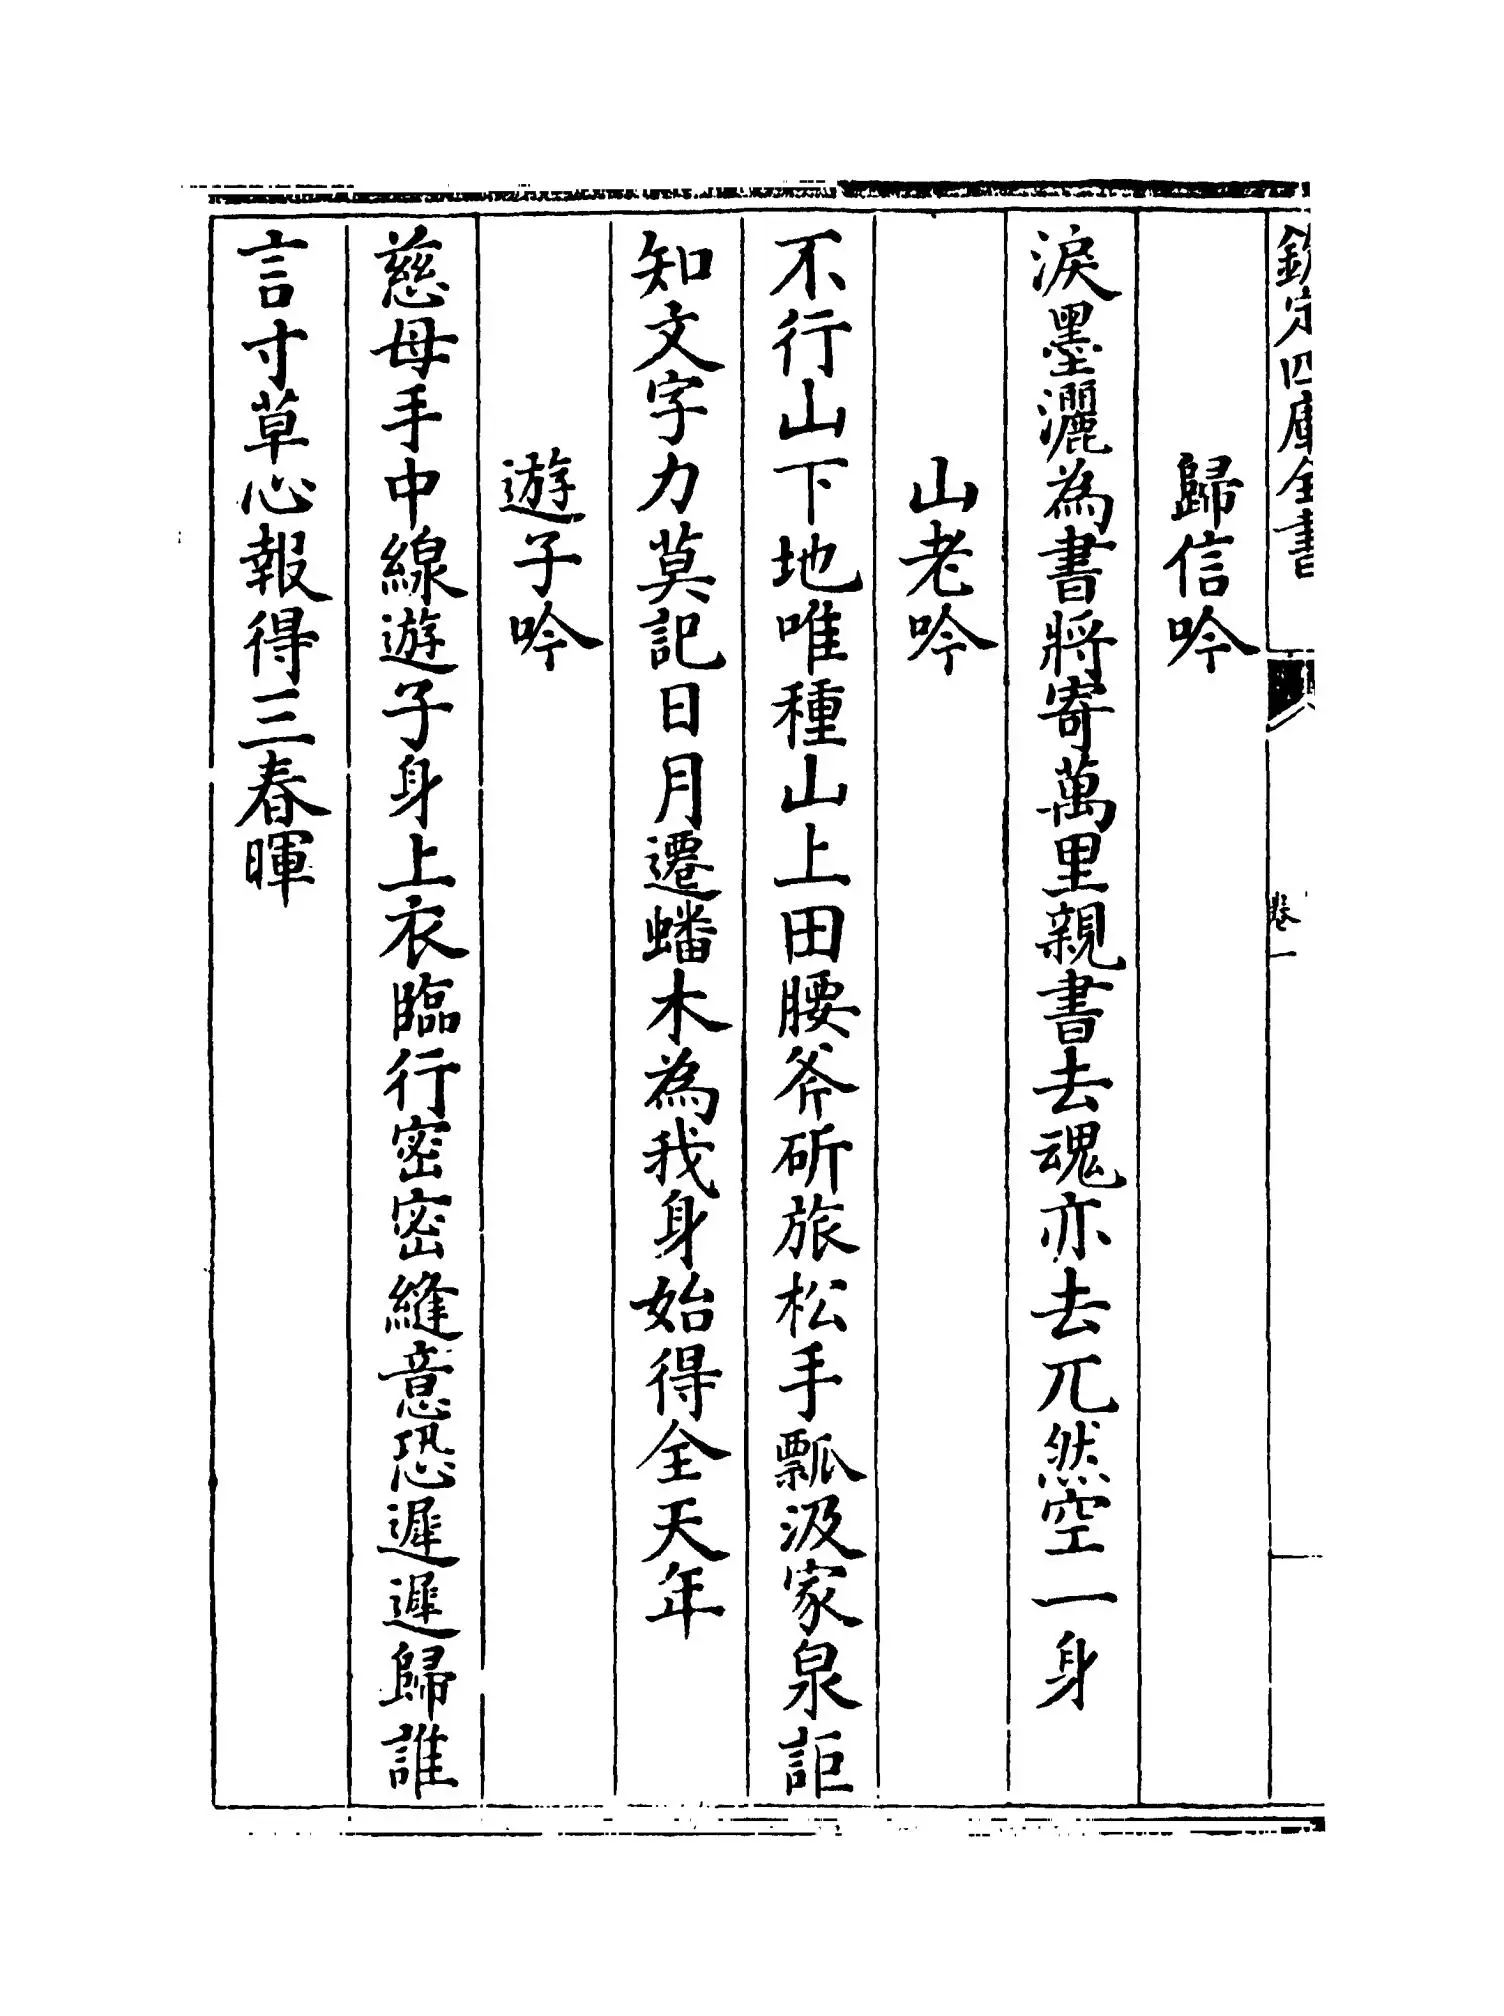 欽定四庫全書
卷一
歸信吟
淚墨灑為書將寄萬里親書去魂亦去兀然空一身
山老吟
不行山下地唯種山上田腰斧斫旅松手瓢汲家泉詎
知文字力莫記日月遷蟠木為我身始得全天年
遊子吟
慈母手中線遊子身上衣臨行密密縫意恐遲遲歸誰
言寸草心報得三春暉